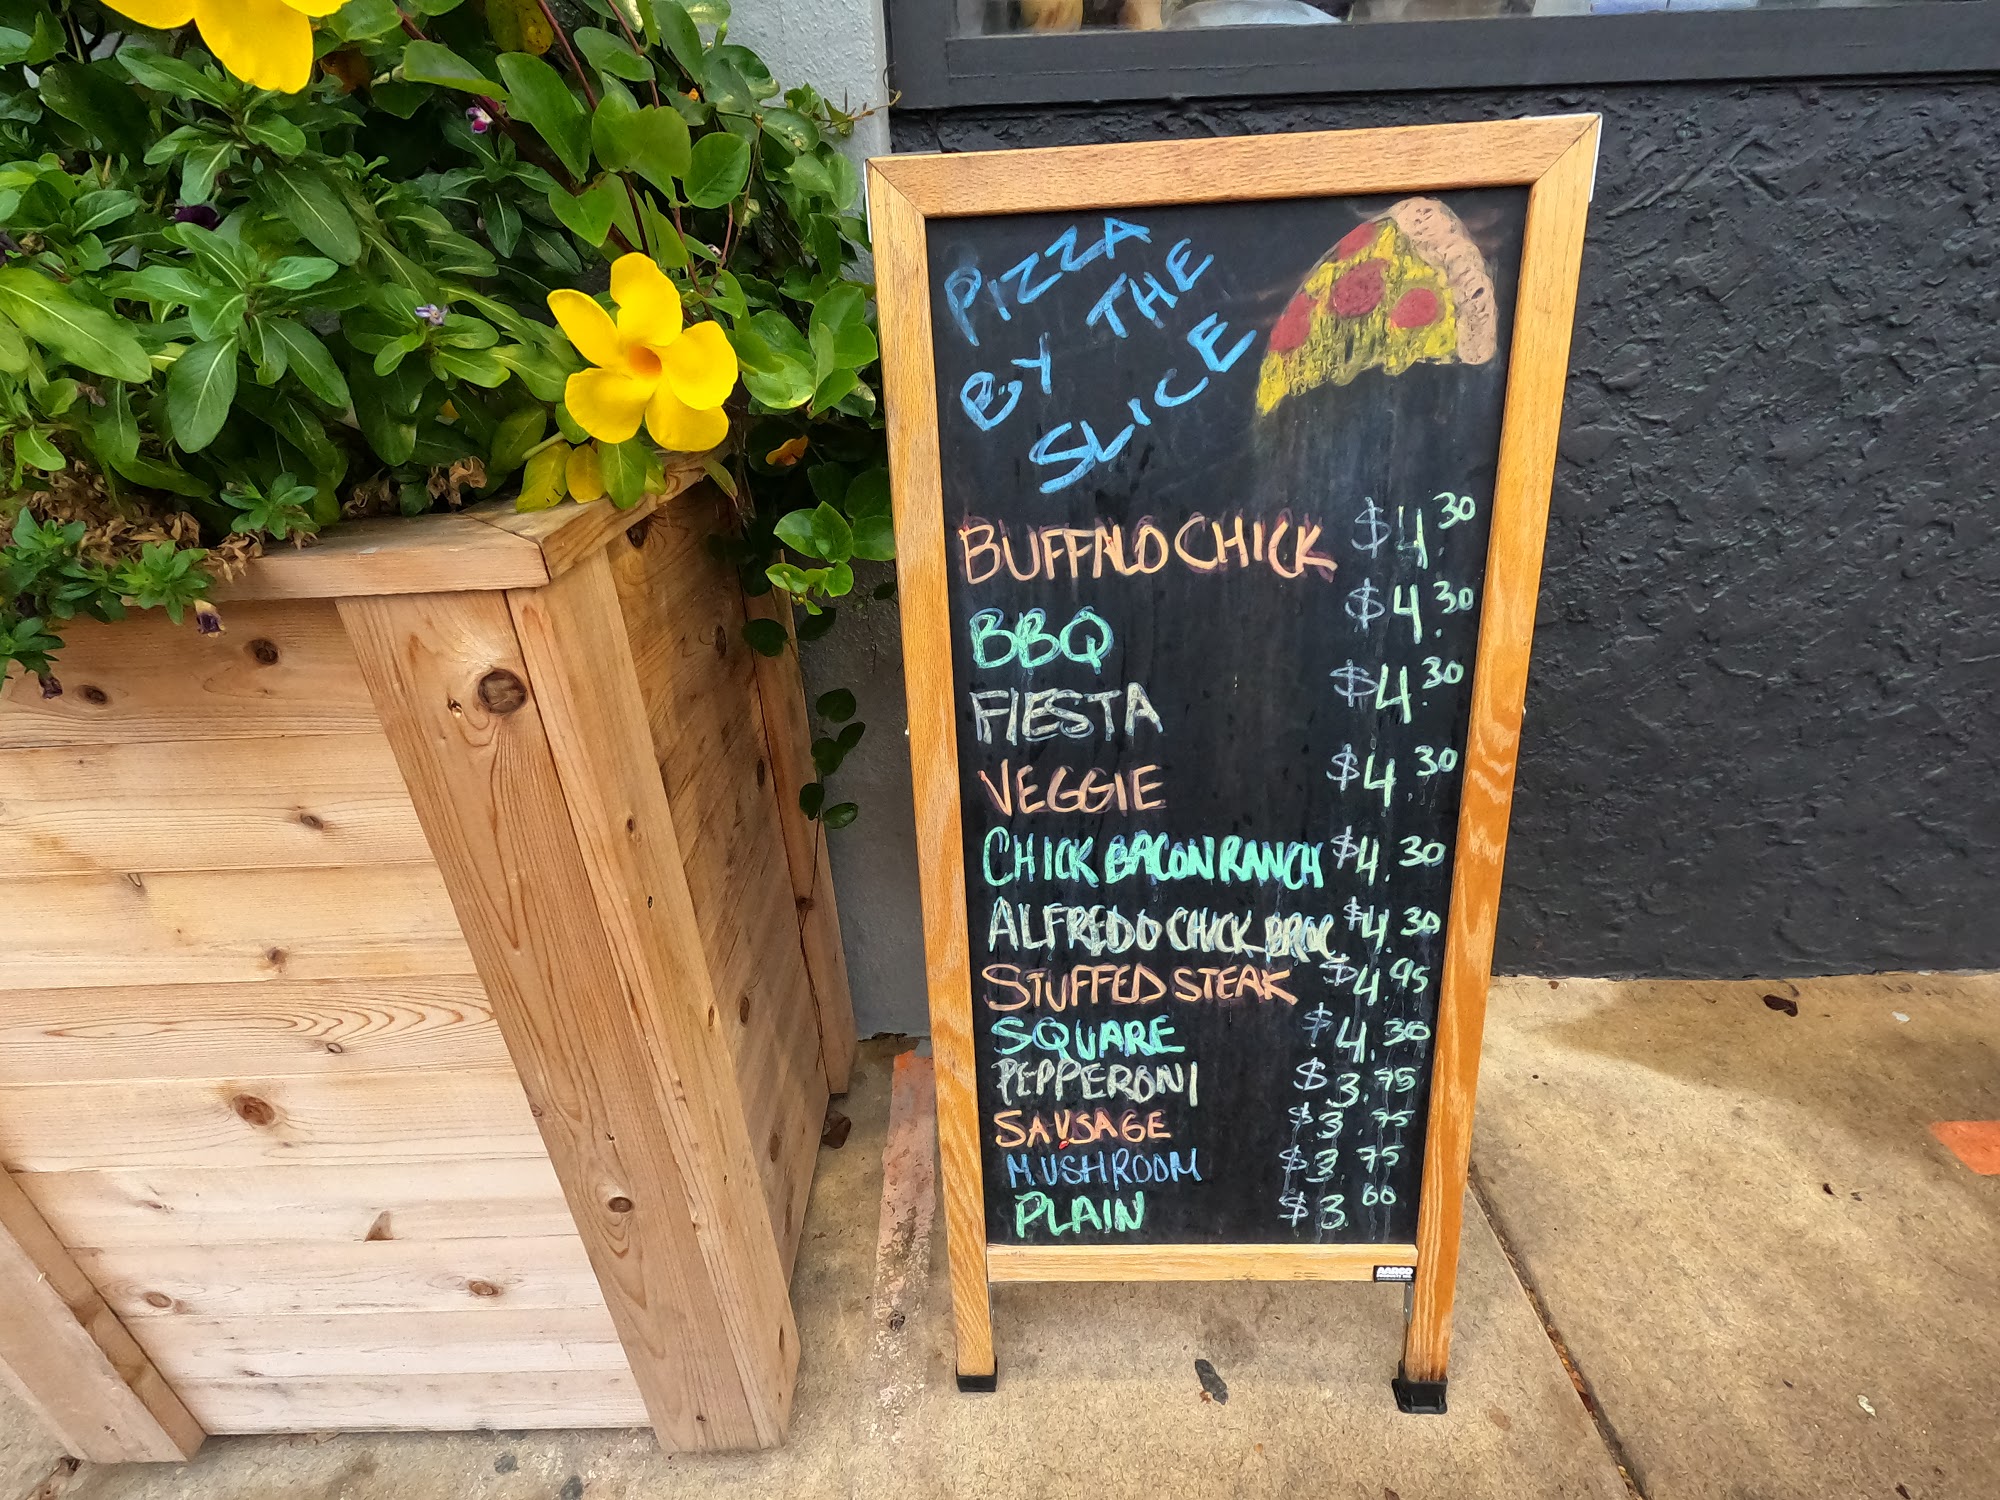 PIZZA
BY THE
SLICE
BUFFALO CHICK $4.30
BBQ $4.30
FIESTA $4.30
VEGGIE $4.30
CHICK BACON RANCH $4.30
ALFREDO CHICK BROC $4.30
STUFFED STEAK $4.95
SQUARE $4.30
PEPPERONI $3.75
SAUSAGE $3.75
MUSHROOM $3.75
PLAIN $3.60
AARCO